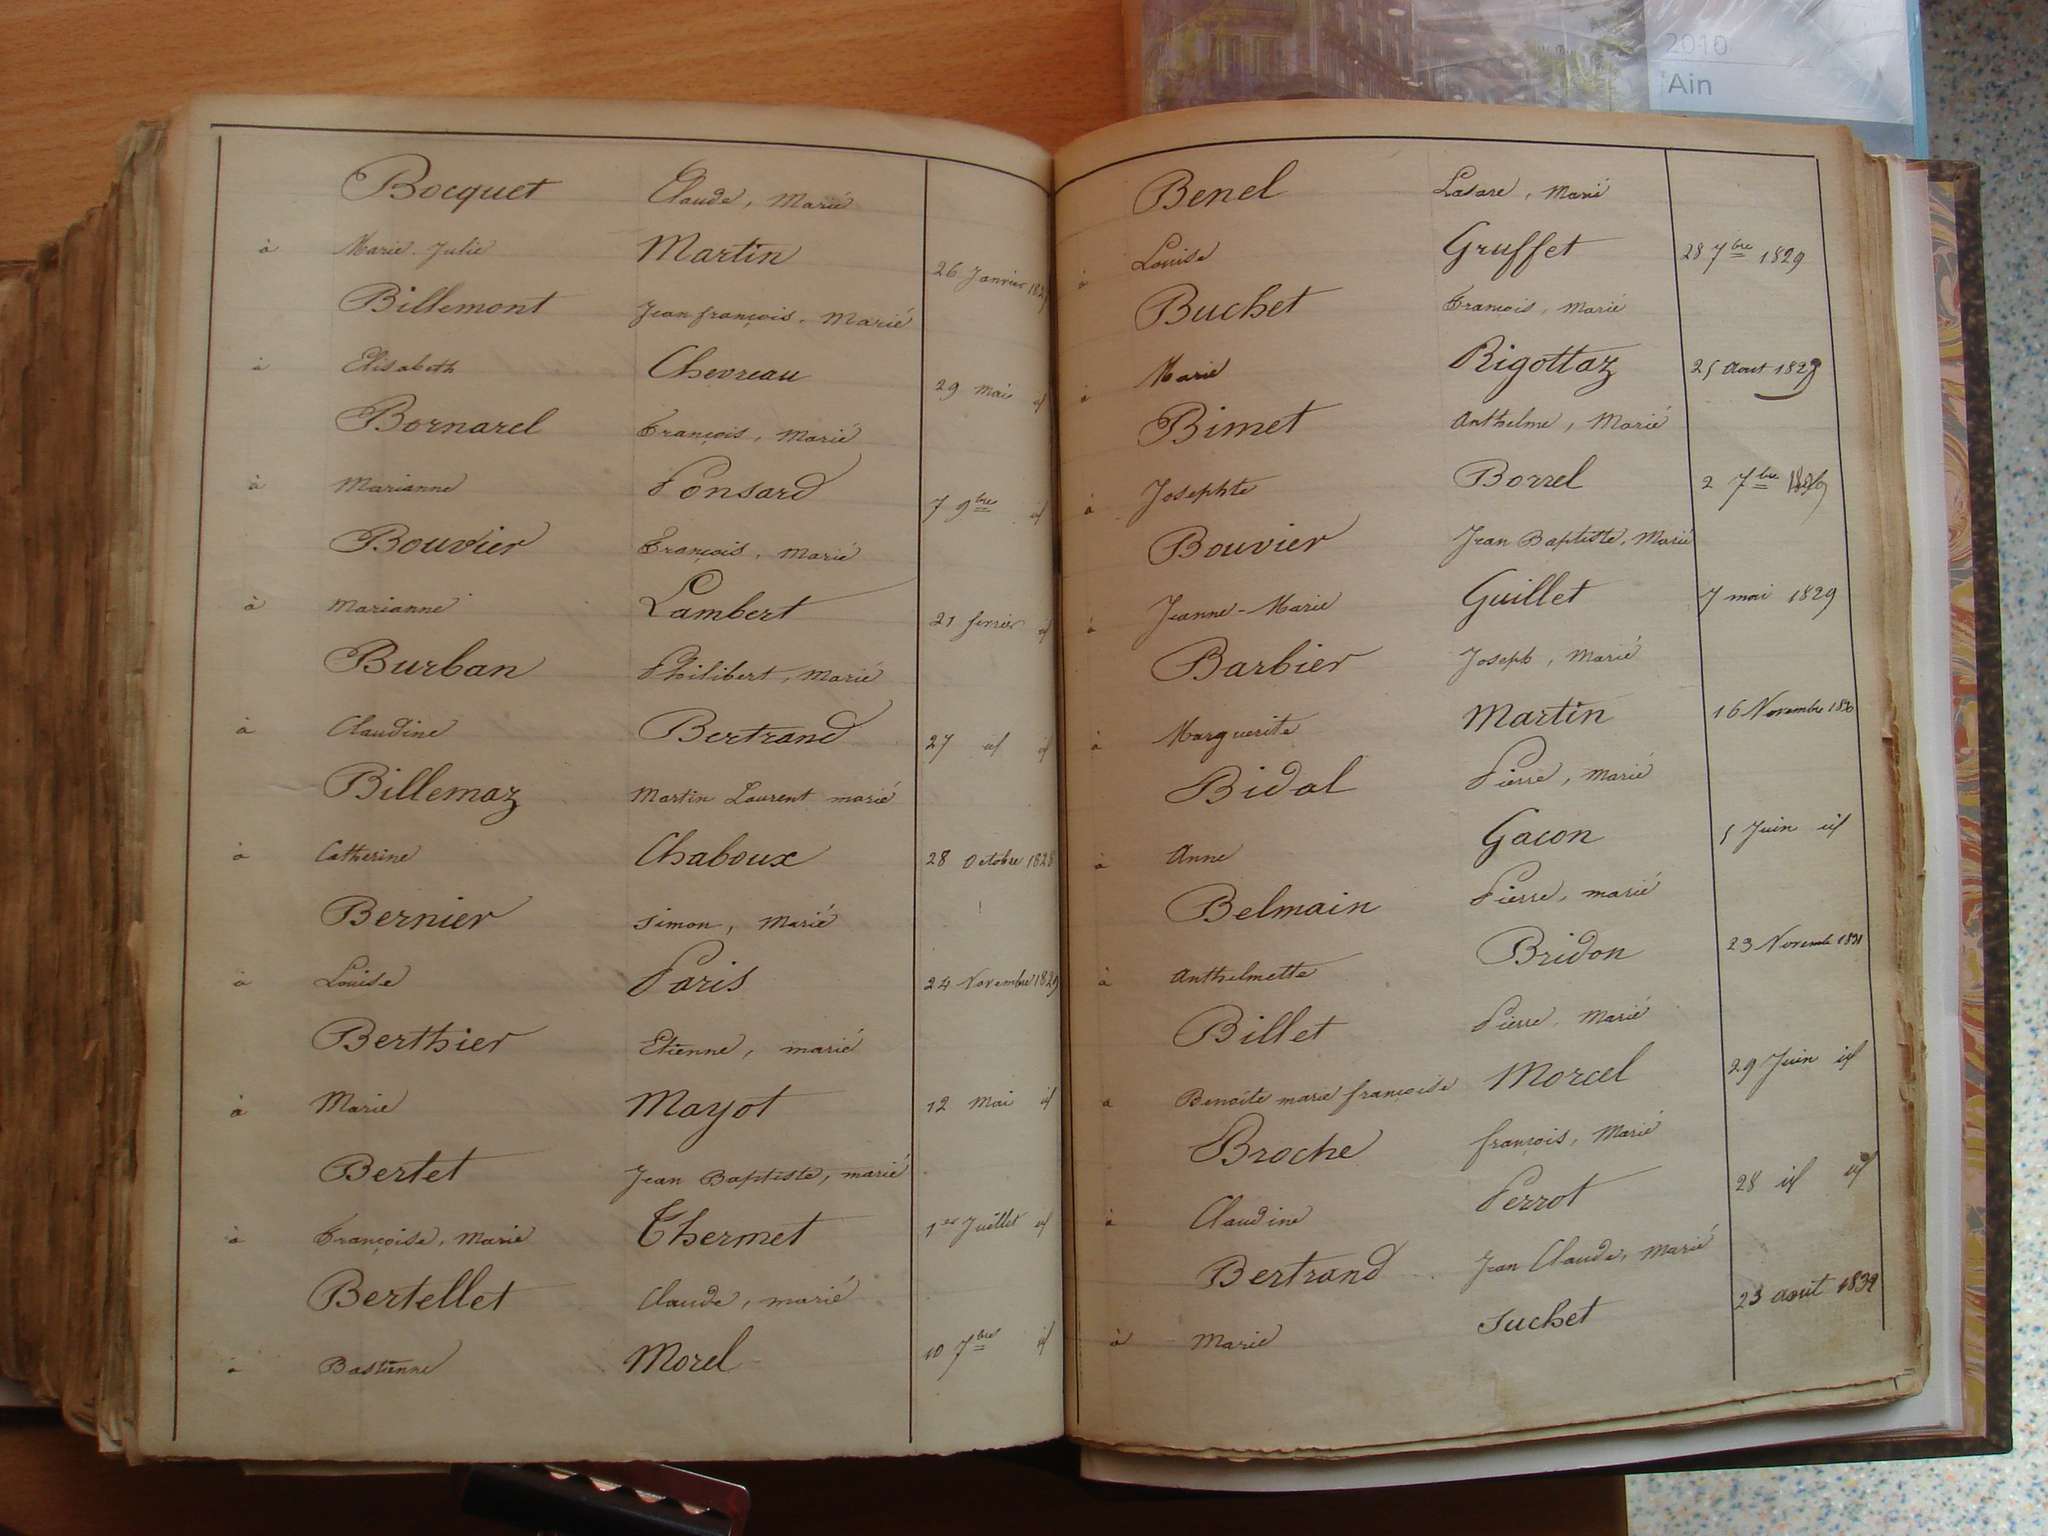 2010
Ain
Bocquet Claude, Marié
à Marie Julie Martin 26 Janvier
Billemont Jean françois, Marié
à Elisabeth Chevreau 29 mai id
Bornarel François, Marié
à Marianne Ponsard 7 9bre id
Bouvier François, Marié
à Marianne Lambert 21 fevrier id
Burban Philibert, Marié
à Claudine Bertrand 27 id id
Billemaz Martin Laurent marié
à Catherine Chaboux 28 Octobre 1828
Bernier Simon, Marié
à Louise Paris 24 Novembre 1829
Berthier Etienne, marié
à Marie Mayot 12 Mai id
Bertet Jean Baptiste, marié
à Françoise, Marie Thermet 1er Juillet id
Bertellet Claude, marié
à Bastienne Morel 10 7bre id
Benel Lasare, Marié
à Louise Gruffet 28 7bre 1829
Buchet François, Marié
à Marie Rigottaz 25 Aout 1829
Bimet Anthelme, Marié
à Josephte Borrel 2 7bre
Bouvier Jean Baptiste, Marié
à Jeanne-Marie Guillet 7 mai 1829
Barbier Joseph, Marié
à Marguerite Martin 16 Novembre 1830
Bidal Pierre, Marié
à Anne Gacon 5 Juin id
Belmain Pierre, marié
à Anthelmette Bridon 23 Novembre 1831
Billet Pierre, Marié
a Benoite marie françoise Morcel 29 Juin id
Broche françois, Marié
à Claudine Perrot 28 id id
Bertrand Jean Claude, Marié
à Marie Suchet 23 aout 1832